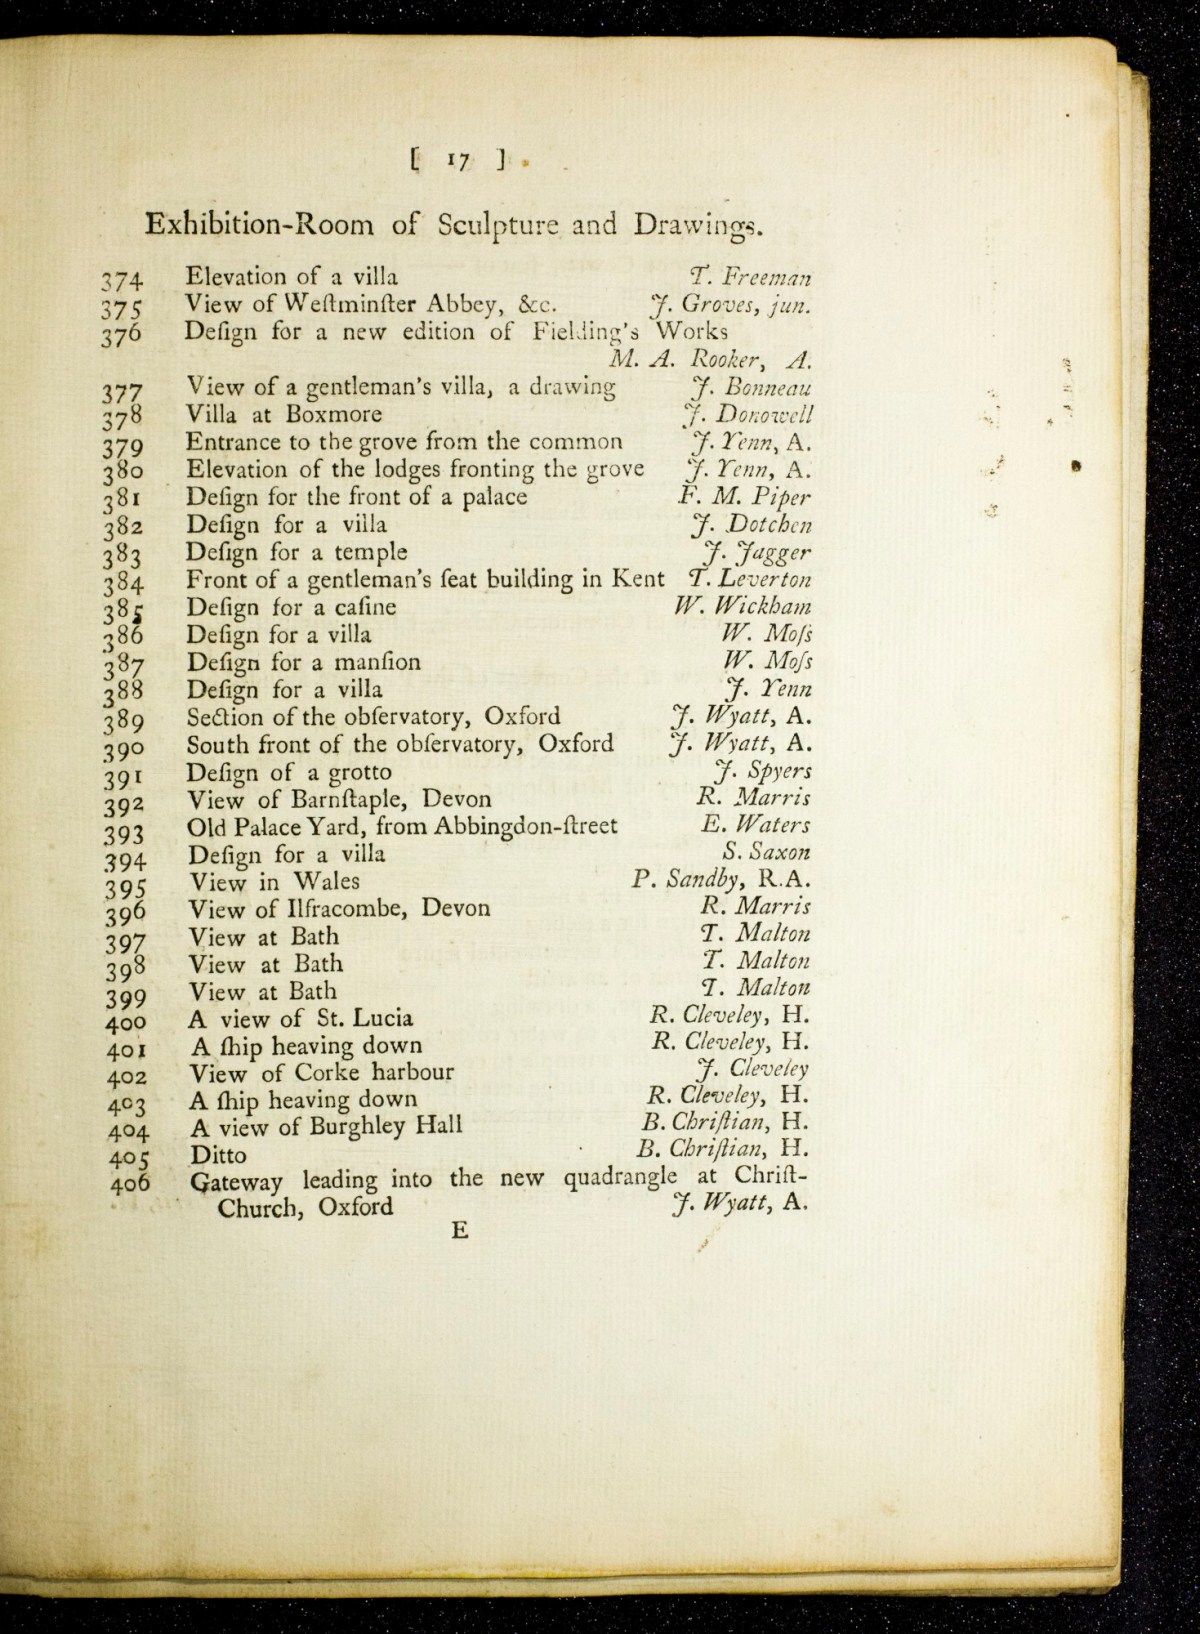 [ 17 ]
Exhibition-Room of Sculpture and Drawings.
374 Elevation of a villa T. Freeman
375 View of Weſtminſter Abbey, &c. J. Groves, jun.
376 Deſign for a new edition of Fielding's Works
M. A. Rooker, A.
377 View of a gentleman's villa, a drawing J. Bonneau
378 Villa at Boxmore J. Donowell
379 Entrance to the grove from the common J. Yenn, A.
380 Elevation of the lodges fronting the grove J. Yenn, A.
381 Deſign for the front of a palace F. M. Piper
382 Deſign for a villa J. Dotchen
383 Deſign for a temple J. Jagger
384 Front of a gentleman's ſeat building in Kent T. Leverton
385 Deſign for a caſine W. Wickham
386 Deſign for a villa W. Moſs
387 Deſign for a manſion W. Moſs
388 Deſign for a villa J. Yenn
389 Section of the obſervatory, Oxford J. Wyatt, A.
390 South front of the obſervatory, Oxford J. Wyatt, A.
391 Deſign of a grotto J. Spyers
392 View of Barnſtaple, Devon R. Marris
393 Old Palace Yard, from Abbingdon-ſtreet E. Waters
394 Deſign for a villa S. Saxon
395 View in Wales P. Sandby, R.A.
396 View of Ilfracombe, Devon R. Marris
397 View at Bath T. Malton
398 View at Bath T. Malton
399 View at Bath T. Malton
400 A view of St. Lucia R. Cleveley, H.
401 A ſhip heaving down R. Cleveley, H.
402 View of Corke harbour J. Cleveley
403 A ſhip heaving down R. Cleveley, H.
404 A view of Burghley Hall B. Chriſtian, H.
405 Ditto B. Chriſtian, H.
406 Gateway leading into the new quadrangle at Chriſt-
Church, Oxford J. Wyatt, A.
E